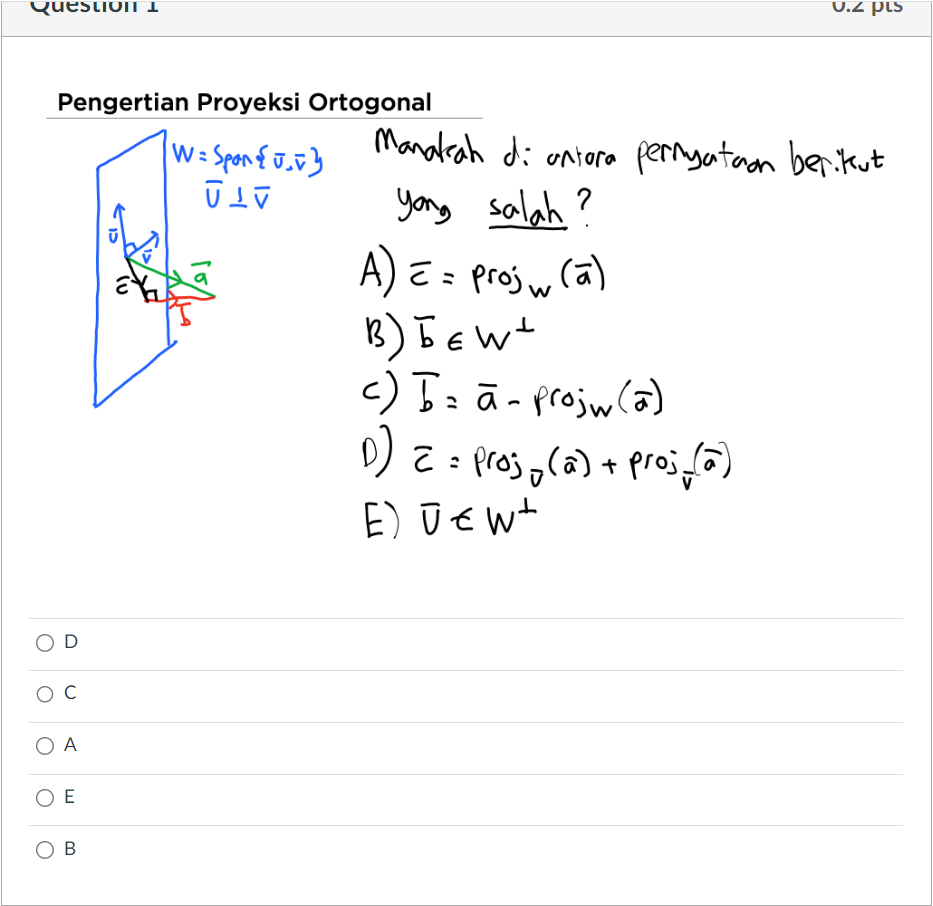 Question 1
0.2 pts
Pengertian Proyeksi Ortogonal
W = Span{ū,v̄}
ū ⊥ v̄
Manakah di antara pernyataan berikut
yang salah?
ū
v̄
ā
c̄
b̄
A) c̄ = proj_W(ā)
B) b̄ ∈ W⊥
C) b̄ = ā - proj_W(ā)
D) c̄ = proj_ū(ā) + proj_v̄(ā)
E) ū ∈ W⊥
D
C
A
E
B